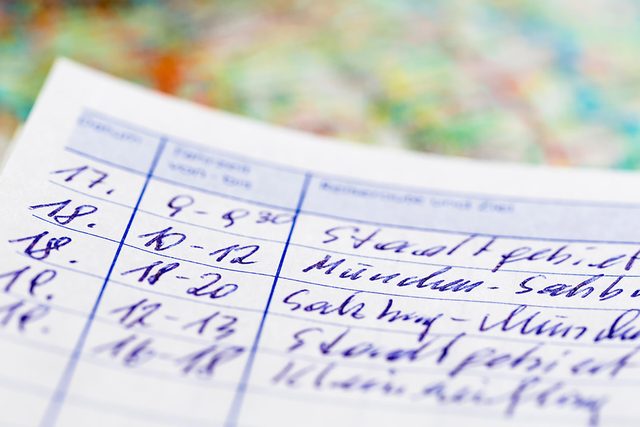 Datum Fahrzeit von - bis Reiseroute und Ziel
17. 9-9³⁰ Stadtgebiet
18. 10-12 München-Salzbu
18. 18-20 Salzburg-Münche
19. 12-13 Stadtgebiet
19. 16-18